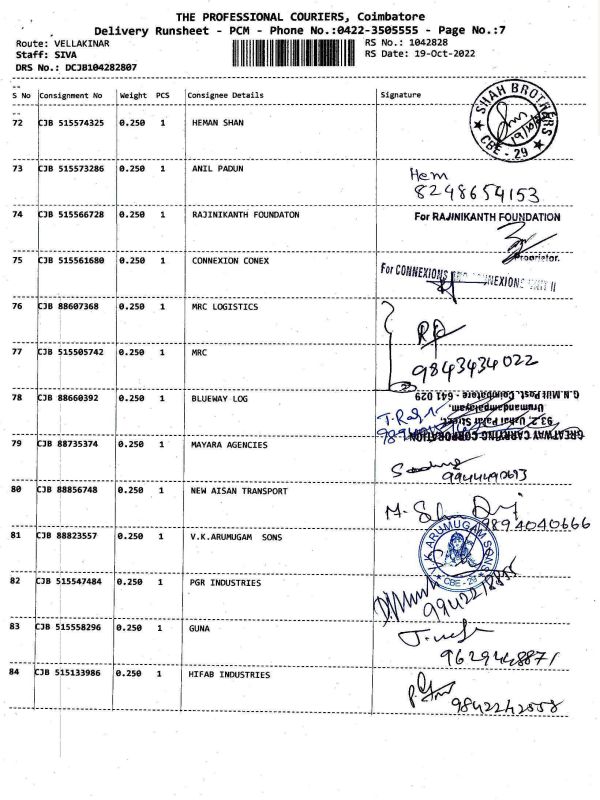 THE PROFESSIONAL COURIERS, Coimbatore
Delivery Runsheet - PCM - Phone No.:0422-3505555 - Page No.:7
Route: VELLAKINAR RS No.: 1042828
Staff: SIVA RS Date: 19-Oct-2022
DRS No.: DCJB104282807
--
S No Consignment No Weight PCS Consignee Details Signature
--
72 CJB 515574325 0.250 1 HEMAN SHAN
SHAH BROTHERS
CBE - 29
73 CJB 515573286 0.250 1 ANIL PADUN
Hem
8248654153
74 CJB 515566728 0.250 1 RAJINIKANTH FOUNDATON
For RAJINIKANTH FOUNDATION
Proprietor.
75 CJB 515561680 0.250 1 CONNEXION CONEX
For CONNEXIONS
76 CJB 88607368 0.250 1 MRC LOGISTICS
77 CJB 515505742 0.250 1 MRC
9843434022
78 CJB 88660392 0.250 1 BLUEWAY LOG
GREATWAY CARRYING CORPORATION
Urumandampalayam,
G.N.Mill Post, Coimbatore - 641 029
79 CJB 88735374 0.250 1 MAYARA AGENCIES
9944490673
80 CJB 88856748 0.250 1 NEW AISAN TRANSPORT
9894040666
81 CJB 88823557 0.250 1 V.K.ARUMUGAM SONS
V.K.ARUMUGAM SONS
CBE - 29
82 CJB 515547484 0.250 1 PGR INDUSTRIES
83 CJB 515558296 0.250 1 GUNA
9629448871
84 CJB 515133986 0.250 1 HIFAB INDUSTRIES
9842242558